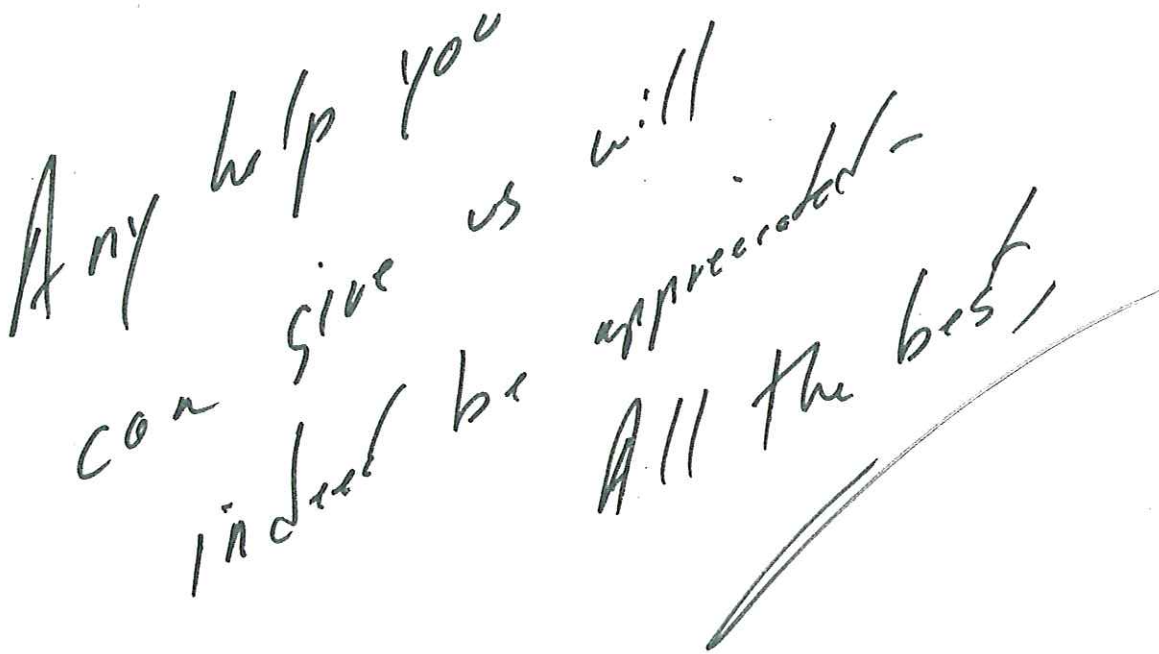 Any help you
can give us will
indeed be appreciated-
All the best,